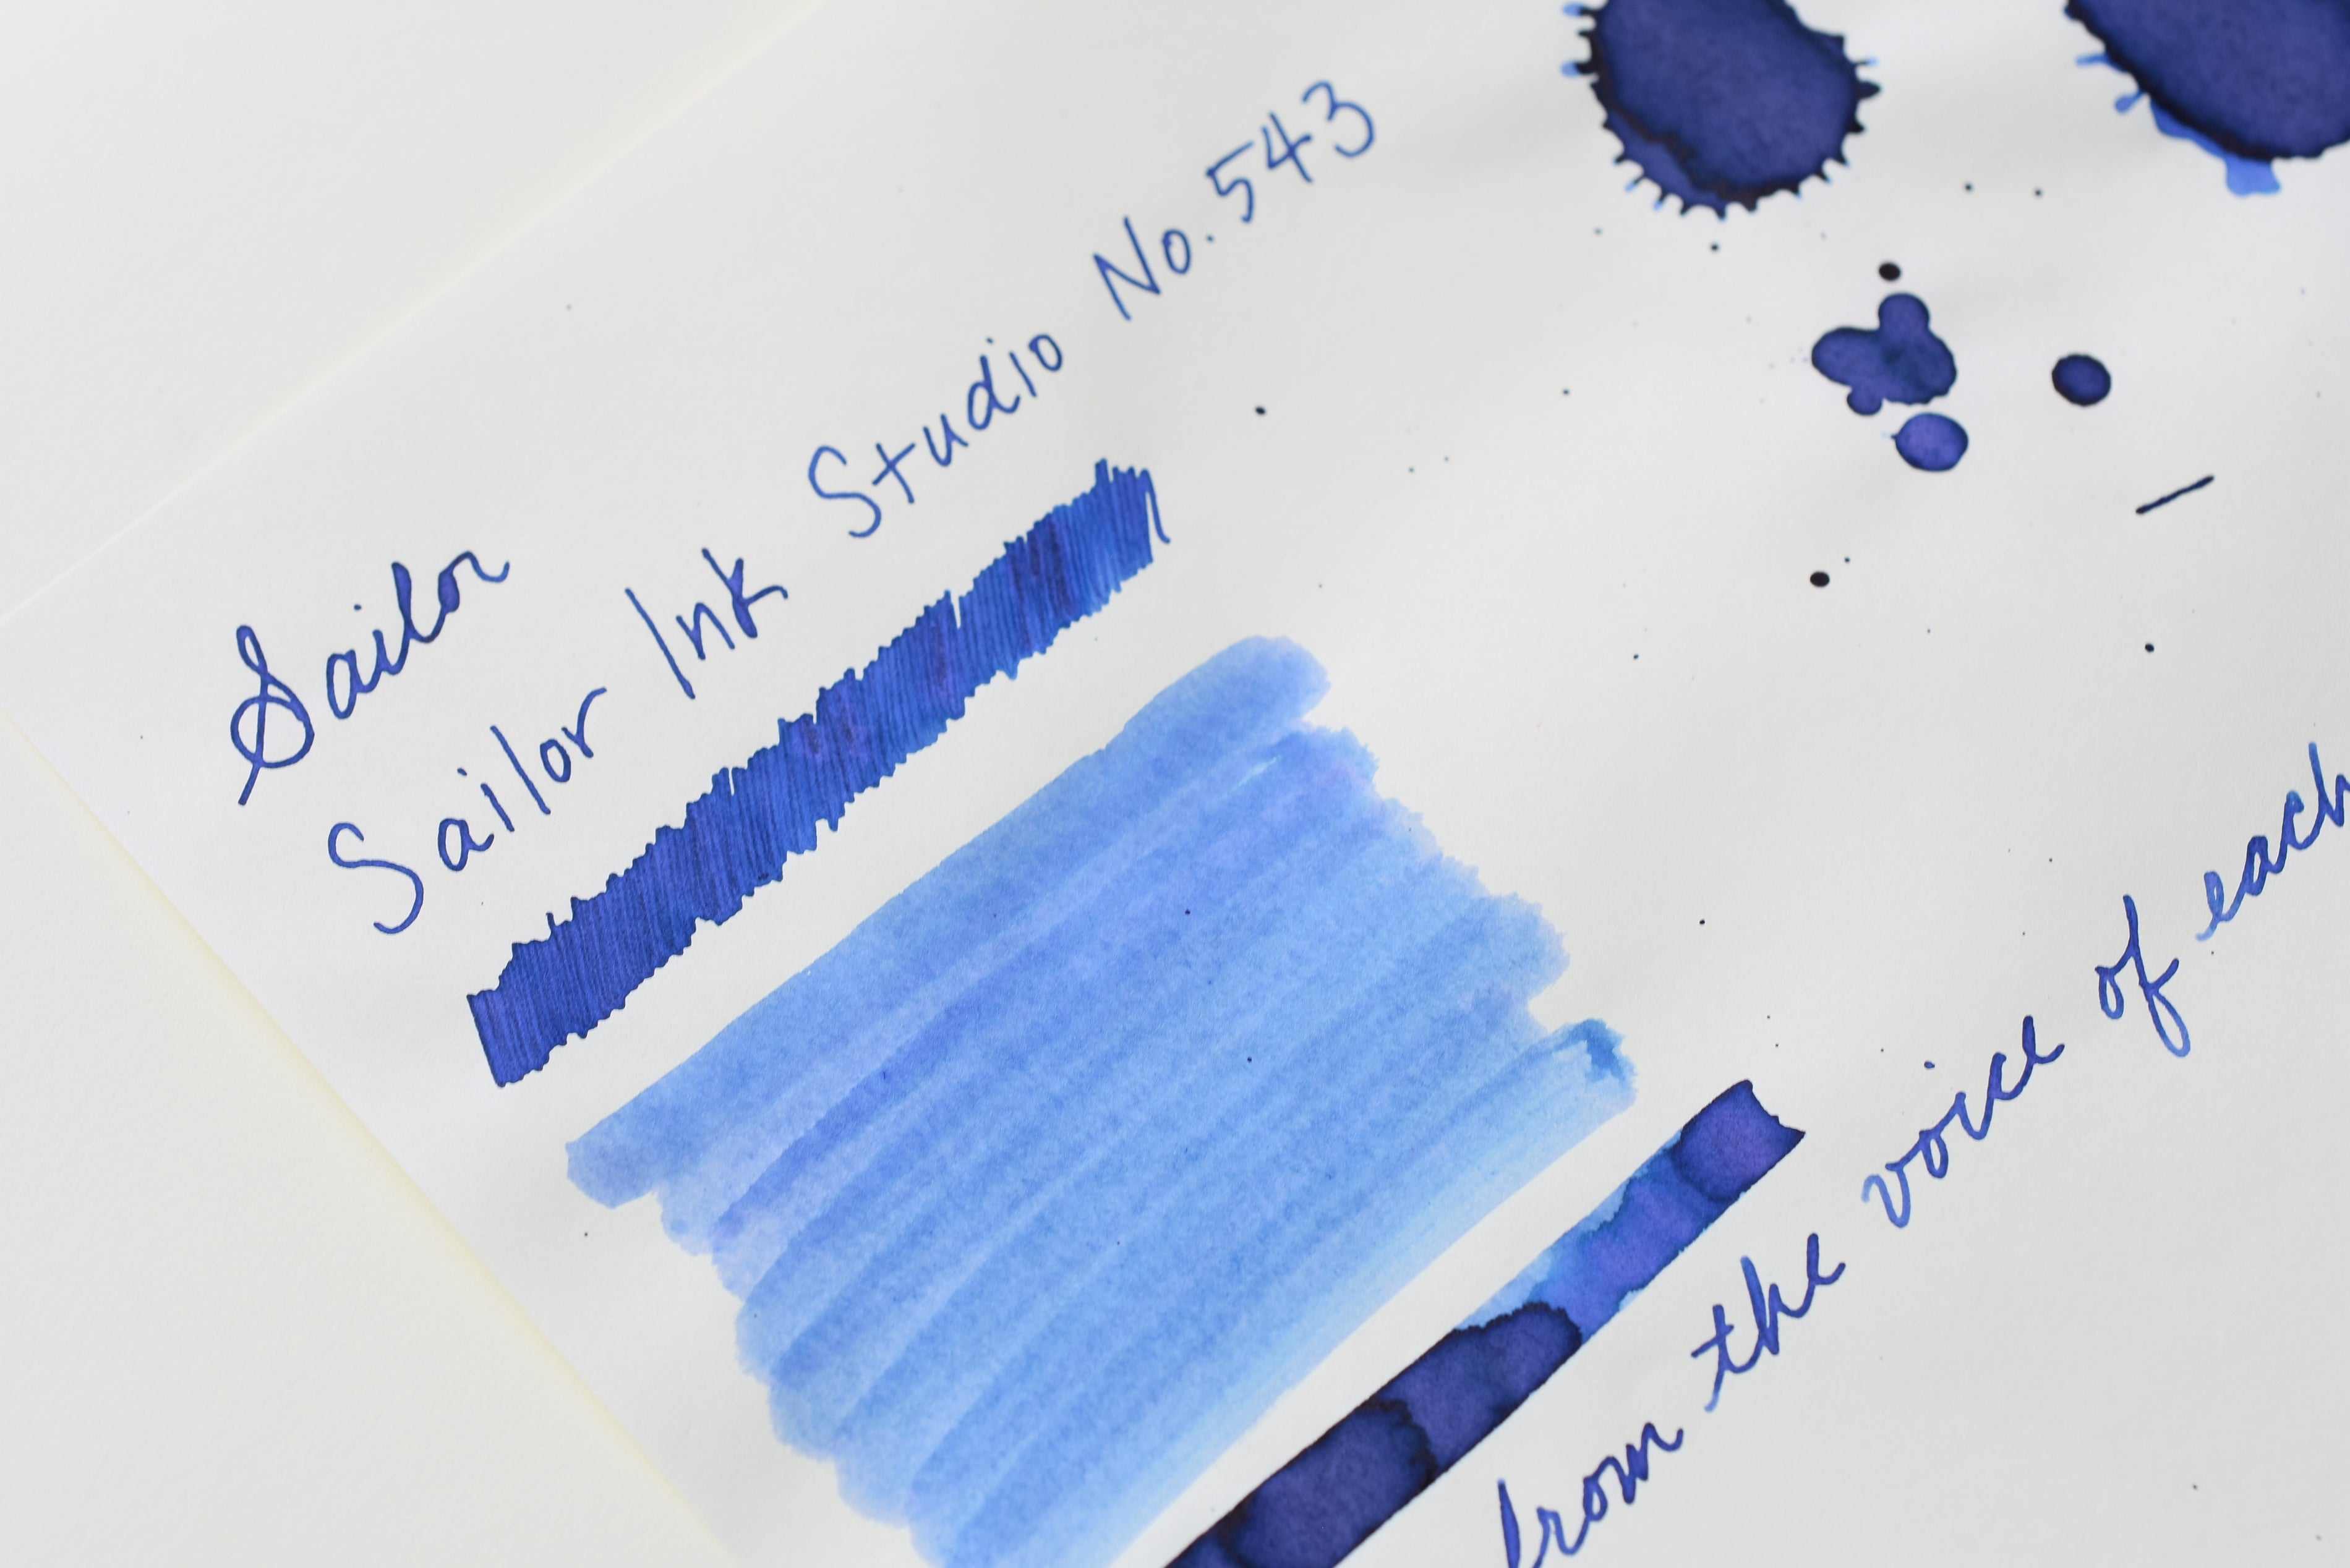 Sailor
Sailor Ink Studio No. 543
from the voice of each